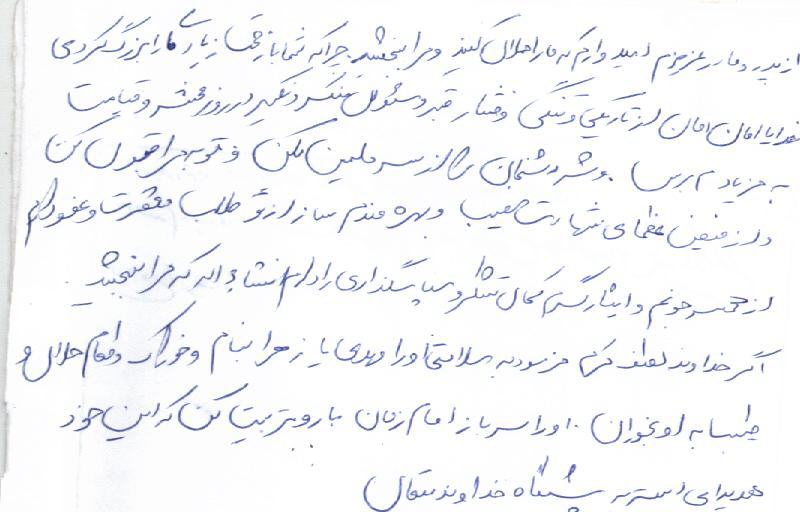 از پدر و مادر عزیزم امیدوارم که مار احلال کنید و مرا ببخشید چرا که شما با زحمت زیاد ما را بزرگ کردی
خدایا امان امان از تاریکی و تنگی و فشار قبر و سئوال منکر و نکیر در روز محشر و قیامت
به فریادم برس و شر دشمنان را از سر مسلمین بکن و توبه مرا قبول کن
و از فیض عظمای شهادت نصیب و بهره مندم ساز از تو طلب مغفرت و عفو دارم
از همسر خوبم و ایثارگرم کمال تشکر و سپاسگذاری را دارم انشاء الله که مرا ببخشید
اگر خداوند لطف کرم فرمود به سلامتی او را مهدی یا زهرا بنام و خوراک و طعام حلال و
طیب به او بخوران . او را سرباز امام زمان بار و تربیت کن که این خود
هدیه‌ای است به پیشگاه خداوند متعال